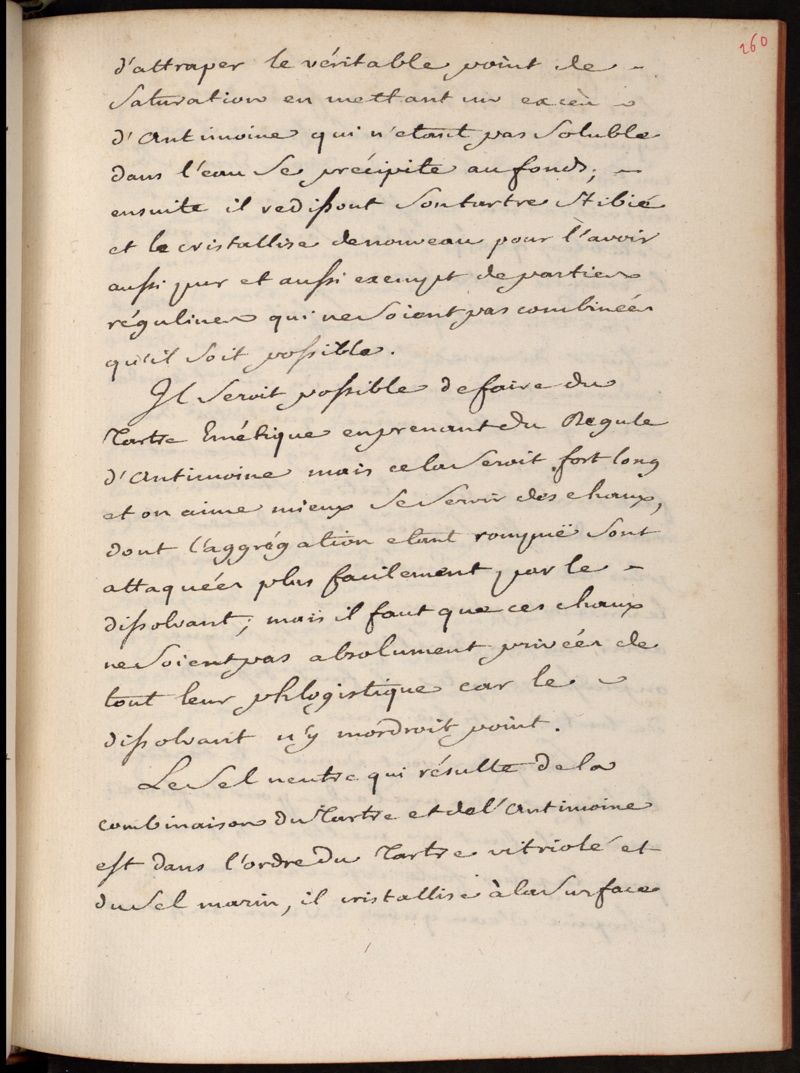 260
d'attraper le véritable point de -
Saturation en mettant un excès -
d'Antimoine qui n'etant pas Soluble
dans l'eau Se précipite au fonds; -
ensuite il redissout Son tartre Stibié
et le cristallise de nouveau pour l'avoir
aussi pur et aussi exempt de parties
régulines qui ne Soient pas combinées
qu'il Soit possible.
Il Seroit possible de faire du
Tartre Emétique en prenant du Regule
d'Antimoine mais cela Seroit fort long
et on aime mieux Se Servir des chaux,
dont l'aggrégation etant rompuë Sont
attaquées plus facilement par le -
dissolvant; mais il faut que ces chaux
ne Soient pas absolument privées de
tout leur phlogistique car le -
dissolvant n'y mordroit point.
Le Sel neutre qui résulte de la
combinaison du Tartre et de l'Antimoine
est dans l'ordre du Tartre vitriolé et
du Sel marin, il cristallise à la Surface